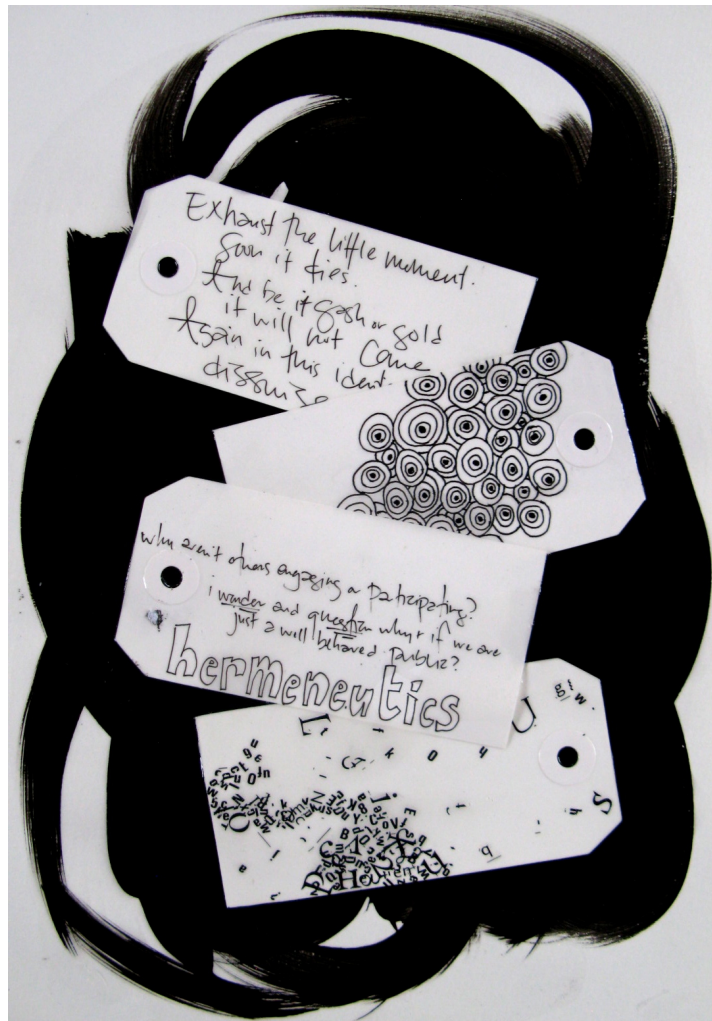 Exhaust the little moment.
Soon it dies.
And be it gash or gold
it will not Come
Again in this ident.
disguise
why aren't others engaging or participating?
i wonder and question why + if we are
just a well behaved public?
hermeneutics